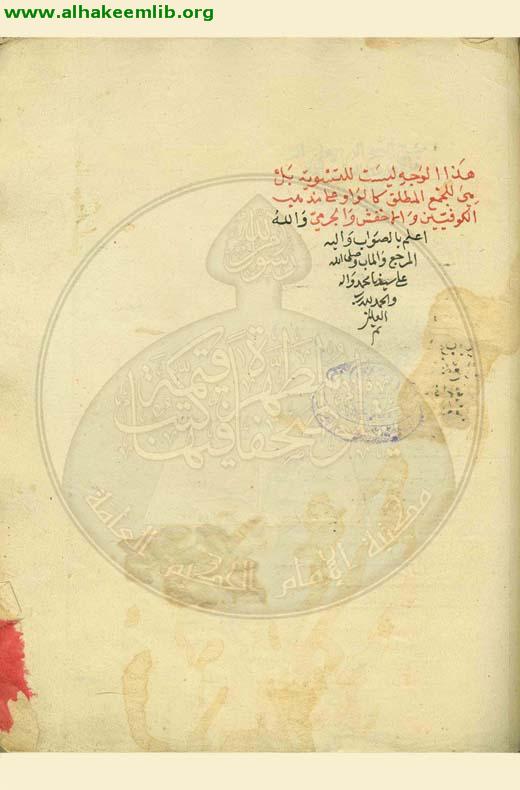 www.alhakeemlib.org
هذا الوجه ليست للتسوية بل
هي للجمع المطلق كالواو على مذهب
الكوفيين والاخفش والجرمي والله
اعلم بالصواب واليه
المرجع والماب وصلى الله
على سيدنا محمد واله
والحمد لله رب
العالمين
تم
رسول الله
مكتبة الإمام الحكيم العامة